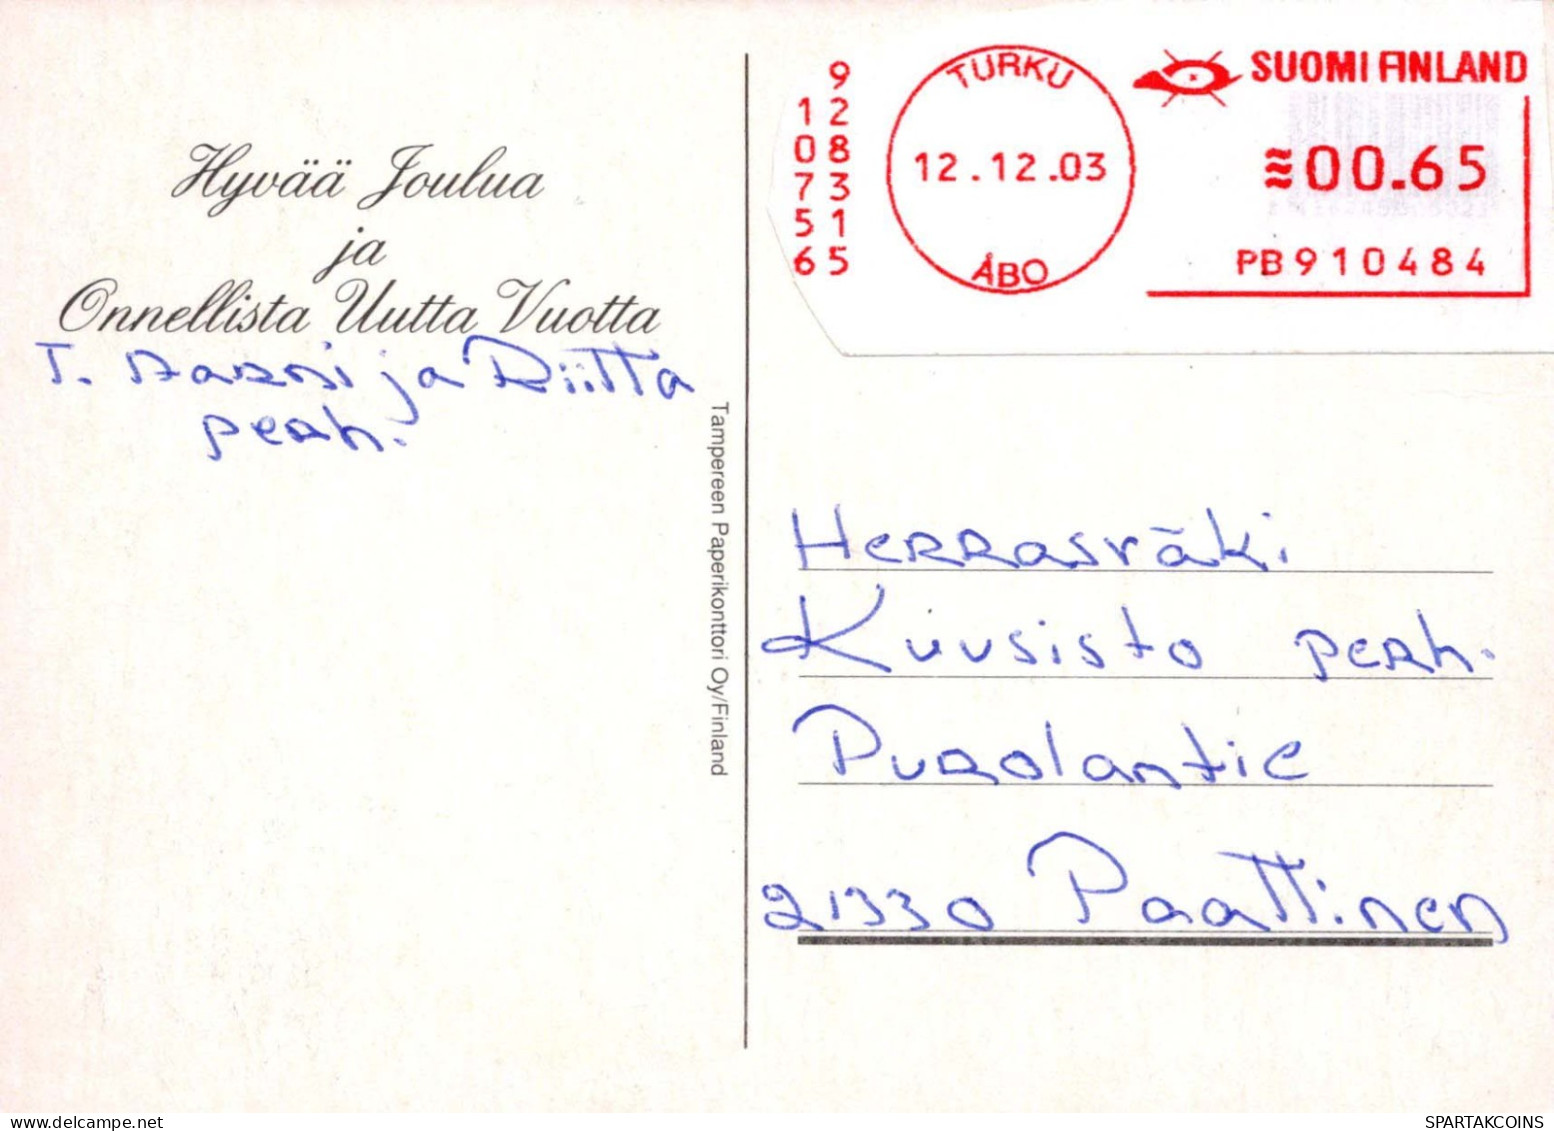 Hyvää Joulua
ja
Onnellista Uutta Vuotta
T. Aarni ja Riitta
perh.
Tampereen Paperikonttori Oy/Finland
9
12
08
73
51
65
TURKU
12.12.03
ÅBO
SUOMI FINLAND
≋00.65
PB910484
Herrasväki
Kuusisto perh.
Purolantie
21330 Paattinen
SPARTAKCOINS